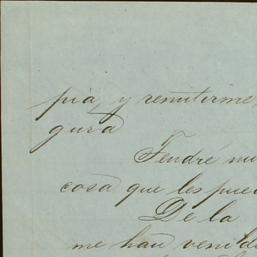 pia, y remitirme
gura
Tendré mu
cosa que les pue
De la
me han venido